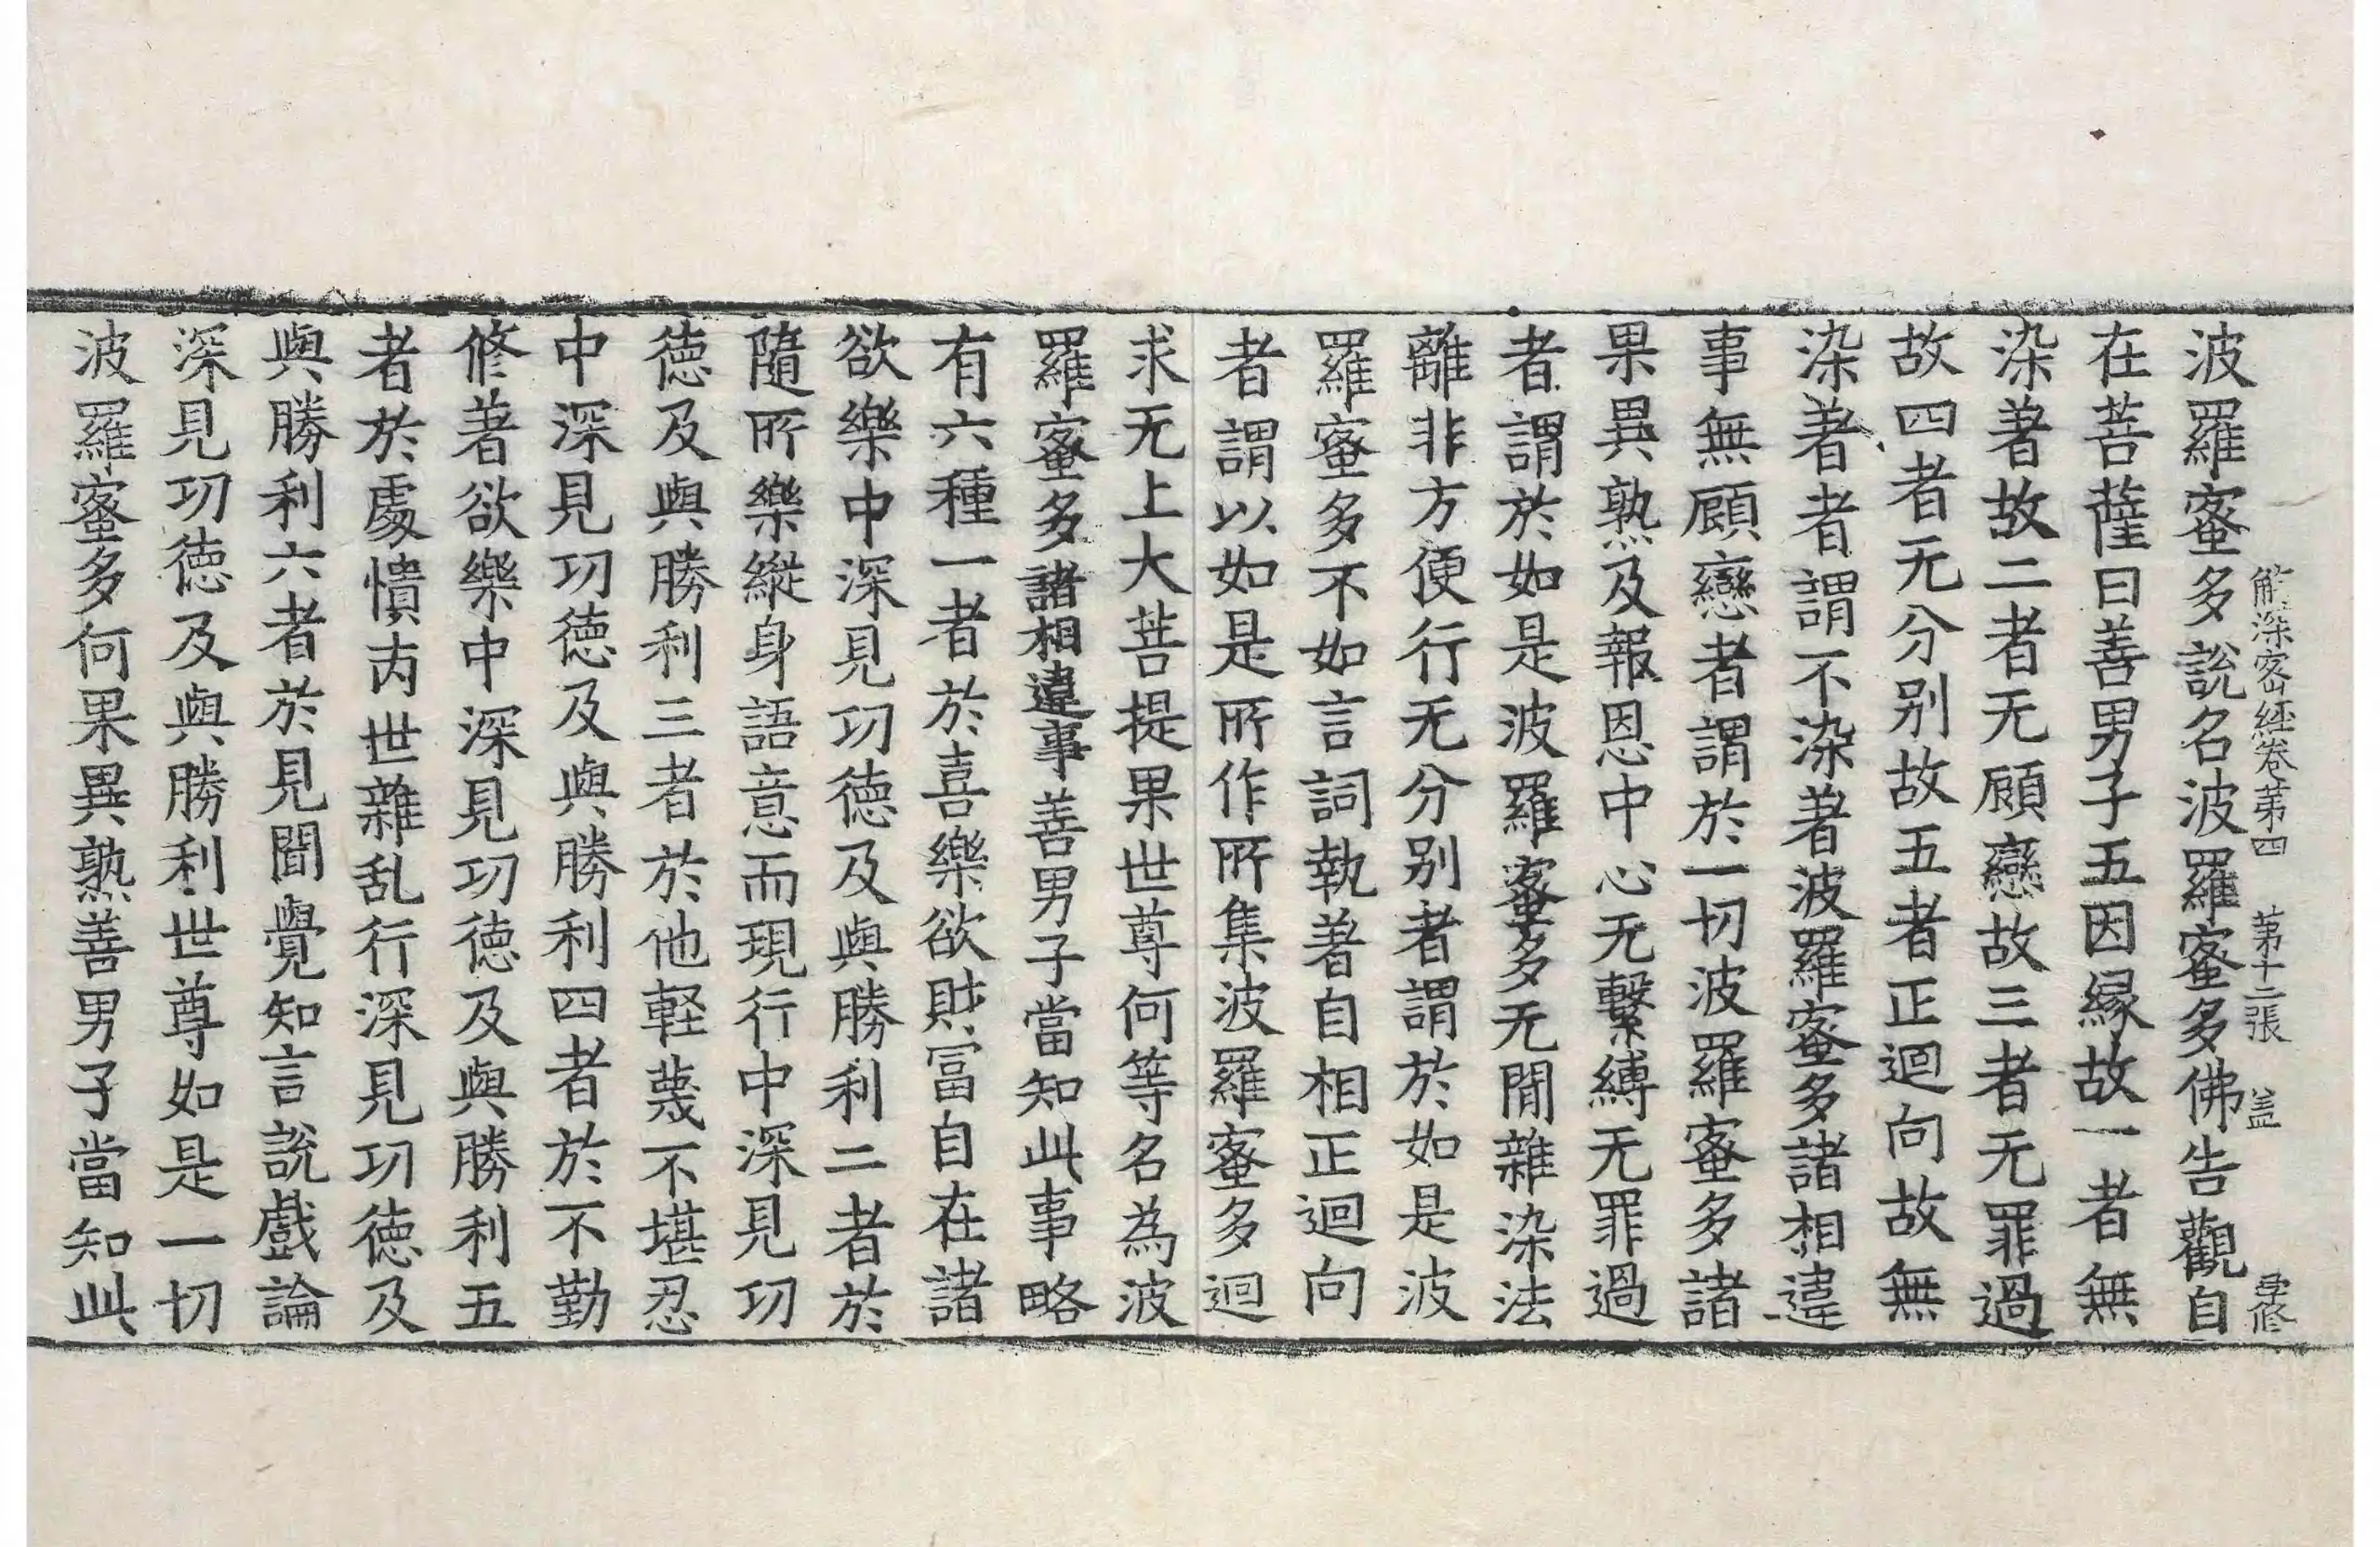 解深密経卷苐四 苐十二張 盖 㝷修
波羅蜜多說名波羅蜜多佛告觀自
在菩薩曰善男子五因緣故一者無
染著故二者无顧戀故三者无罪過
故四者无分别故五者正迴向故無
染著者謂不染著波羅蜜多諸相違
事無顧戀者謂於一切波羅蜜多諸
果異熟及報恩中心无繫縛无罪過
者謂於如是波羅蜜多无間雜染法
離非方便行无分别者謂於如是波
羅蜜多不如言詞執著自相正迴向
者謂以如是所作所集波羅蜜多迴
求无上大菩提果世尊何等名為波
羅蜜多諸相違事善男子當知此事略
有六種一者於喜樂欲財冨自在諸
欲樂中深見功德及與勝利二者於
隨所樂縱身語意而現行中深見功
德及與勝利三者於他軽蔑不堪忍
中深見功德及與勝利四者於不勤
修著欲樂中深見功德及與勝利五
者於處憒丙世雜乱行深見功德及
與勝利六者於見聞覺知言說戲論
深見功德及與勝利世尊如是一切
波羅蜜多何果異熟善男子當知此